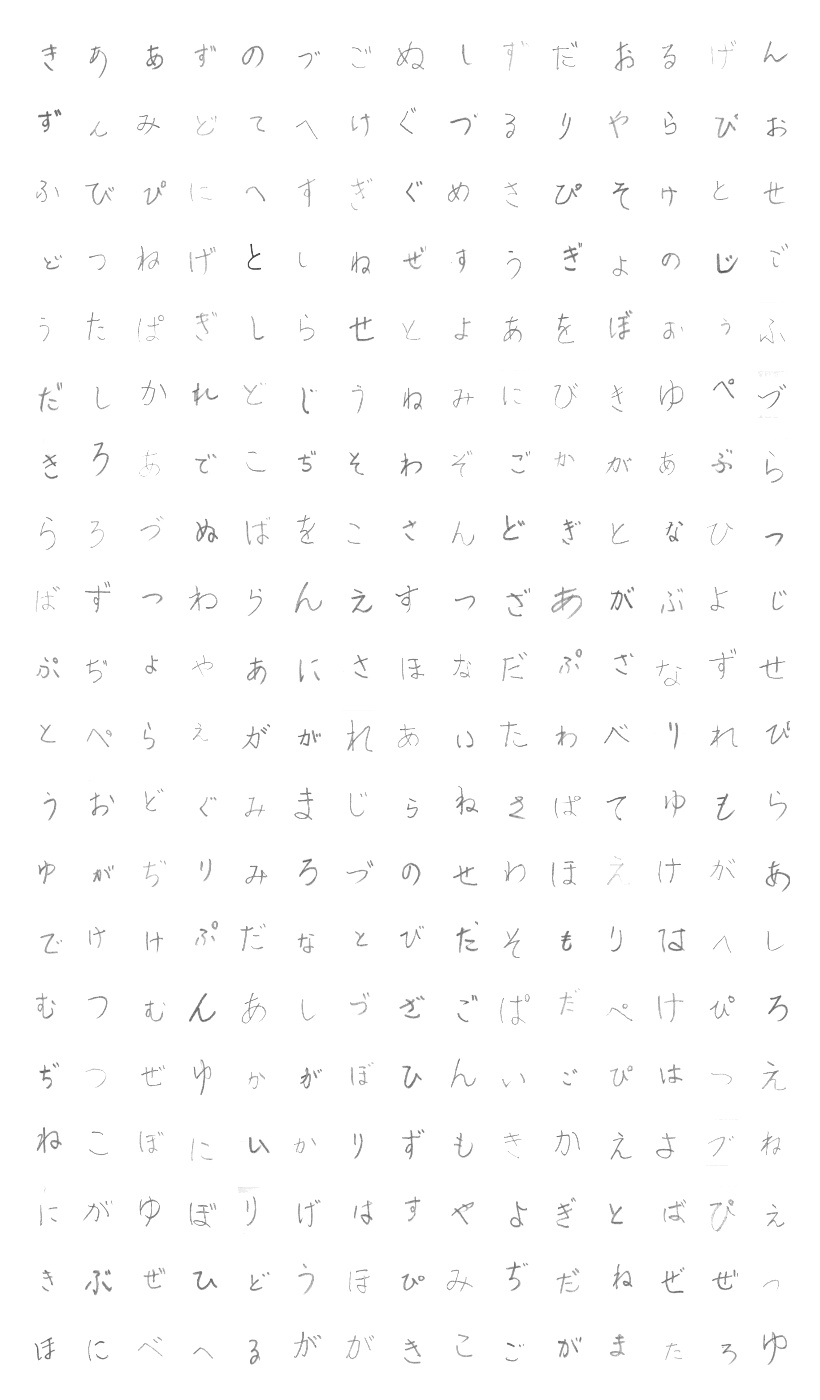 きああずのづごぬしずだおるげん
ずんみどてへけぐづるりやらぴお
ふびぴにへすぎぐめさぴそけとせ
どつねげとしねぜすうぎよのじご
うたぱぎしらせとよあをぼおうふ
だしかれどじうねみにびきゆぺづ
きろあでこぢそわぞごかがあぶら
らろづぬばをこさんどぎとなひつ
ばずつわらんえすつざあがぶよじ
ぷぢよやあにさほなだぷざなずせ
とぺらえががれあいたわべりれび
うおどぐみまじらねさぱてゆもら
ゆがぢりみろづのせわほえけがあ
でけけぷだなとびだそもりはへし
むつむんあしづざごぱだぺけぴろ
ぢつぜゆかがぼひんいごぴはつえ
ねこぼにいかりずもきかえよづね
にがゆぼりげはすやよぎとばぴえ
きぶぜひどうほぴみぢだねぜぜつ
ほにべへるががきこごがまたろゆ